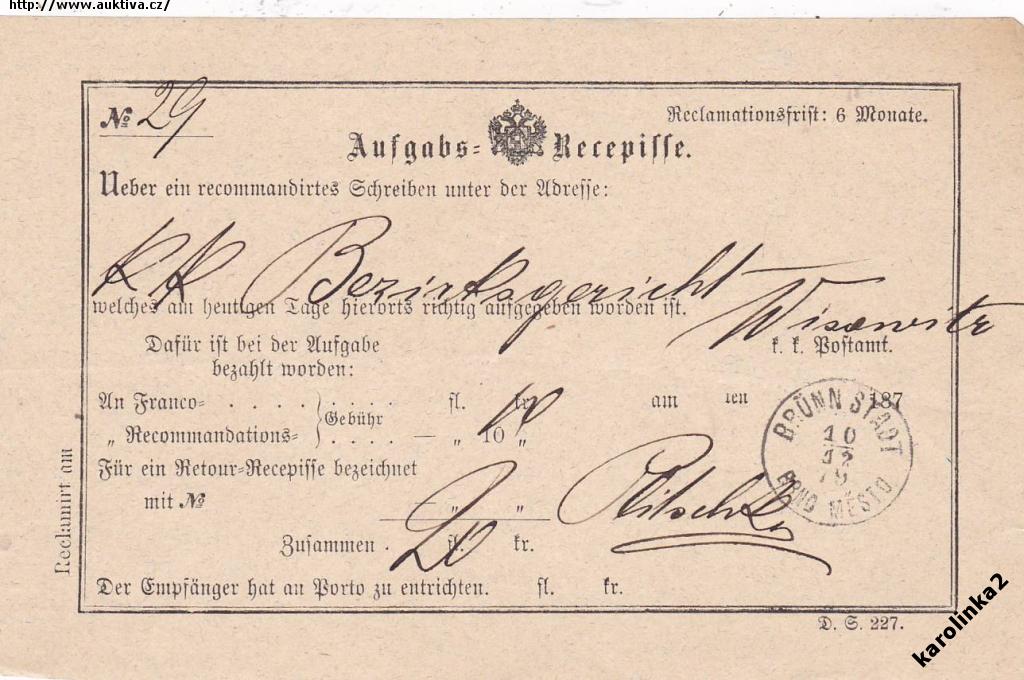 http://www.auktiva.cz/
№ 29
Reclamationsfrist: 6 Monate.
Aufgabs= Recepisse.
Ueber ein recommandirtes Schreiben unter der Adresse:
KK Bezirksgericht
welches am heutigen Tage hierorts richtig aufgegeben worden ist.
Wisowitz
Dafür ist bei der Aufgabe
bezahlt worden:
k. k. Postamt.
An Franco= . . . . . . . . . fl. kr. 10 am ten 187
Gebühr
„ Recommandations= . . . . — „ 10 „
BRÜNN STADT
10
12
79
BRNO MĚSTO
Für ein Retour=Recepisse bezeichnet
mit № „ „
Zusammen . 20 fl. kr.
Der Empfänger hat an Porto zu entrichten. fl. kr.
Reclamirt am
D. S. 227.
karolinka2